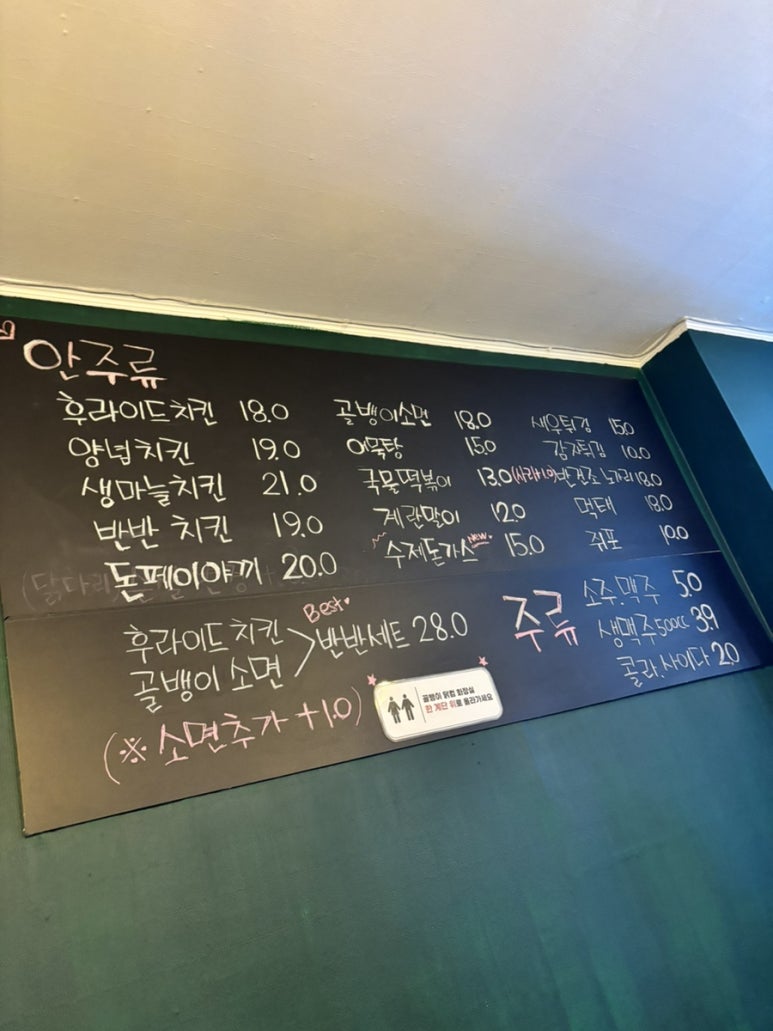 안주류
후라이드치킨 18.0
양념치킨 19.0
생마늘치킨 21.0
반반 치킨 19.0
돈페이야끼 20.0
골뱅이소면 18.0
어묵탕 15.0
국물떡볶이 13.0 (사리1.0)
계란말이 12.0
수제돈가스 NEW 15.0
새우튀김 15.0
감자튀김 10.0
반건조노가리 18.0
먹태 18.0
쥐포 10.0
후라이드 치킨
골뱅이 소면
> Best 반반세트 28.0
(※ 소면추가 +1.0)
골뱅이 화장실
한 계단 위로 올라가세요
주류
소주.맥주 5.0
생맥주500cc 3.9
콜라.사이다 2.0